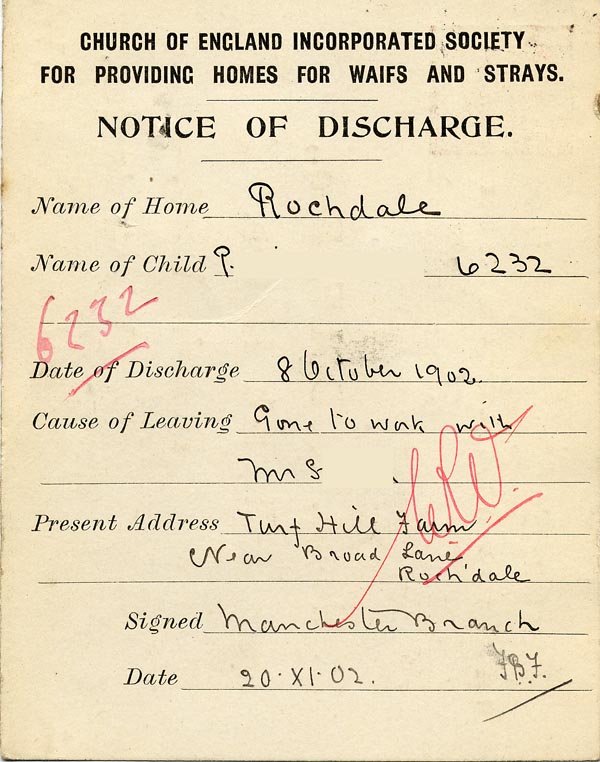 CHURCH OF ENGLAND INCORPORATED SOCIETY
FOR PROVIDING HOMES FOR WAIFS AND STRAYS.
NOTICE OF DISCHARGE.
Name of Home Rochdale
Name of Child P. 6232
6232
Date of Discharge 8 October 1902.
Cause of Leaving Gone to work with
Mr S
Present Address Turf Hill Farm
Near Broad Lane
Roch'dale
Signed Manchester Branch
Date 20.XI.02.